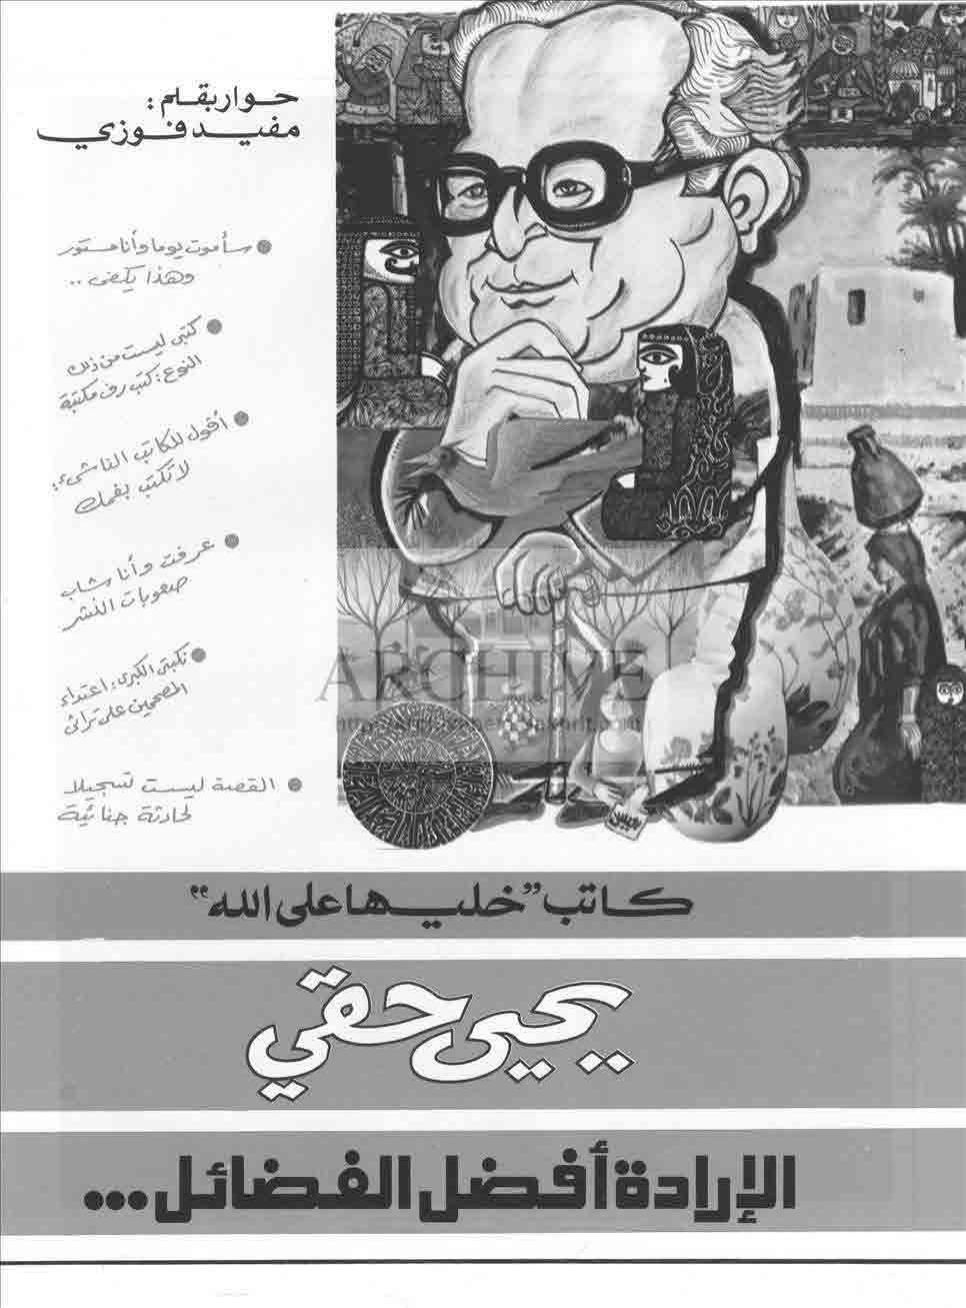 حوار بقلم :
مفيد فوزي
● سأموت يوما وأنا مستور
وهذا يكفى ..
● كتبى ليست من ذلك
النوع : كتب رف مكتبة
● أقول للكاتب الناشىء :
لا تكتب بفمك
● عرفت وأنا شاب
صعوبات النشر
● نكبتى الكبرى : اعتداء
المصححين على تراثى
● القصة ليست تسجيلا
لحادثة جنائية
ARCHIVE
كاتب "خليها على الله"
يحيى حقي
الإرادة أفضل الفضائل ...